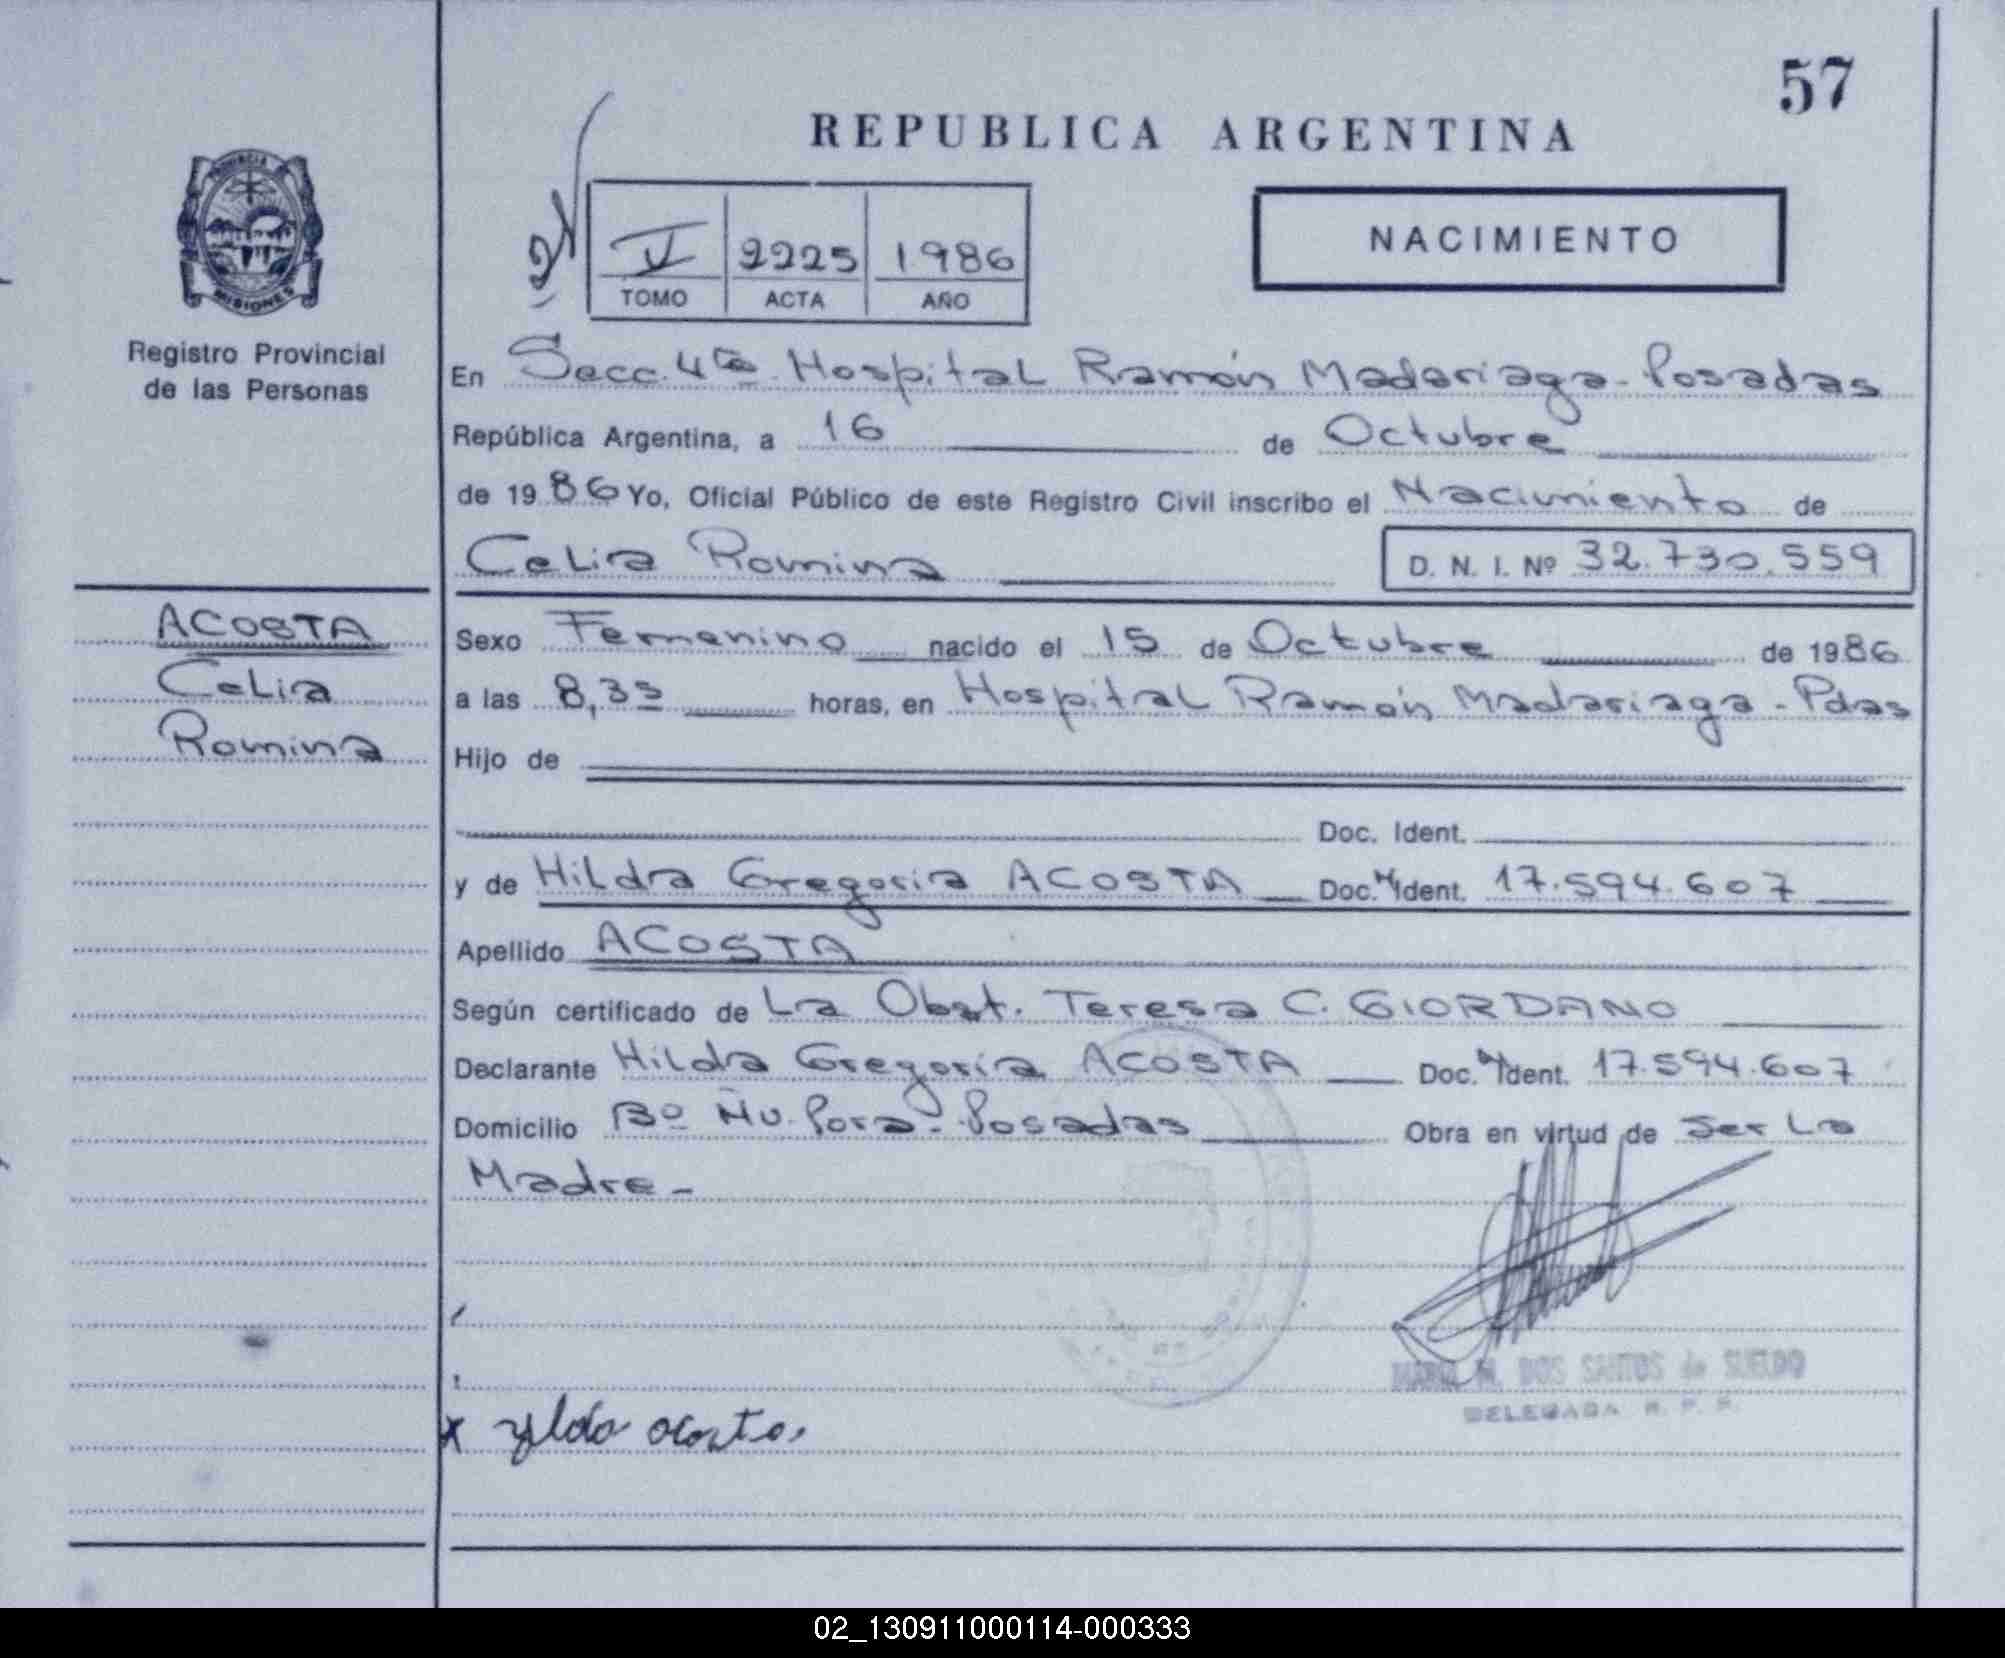 57
REPUBLICA ARGENTINA
PROVINCIA
MISIONES
Registro Provincial
de las Personas
V 2225 1986
TOMO ACTA AÑO
NACIMIENTO
En Secc. 4ta Hospital Ramón Madariaga - Posadas
República Argentina, a 16 de Octubre
de 1986 Yo, Oficial Público de este Registro Civil inscribo el Nacimiento de
Celia Romina D. N. I. Nº 32.730.559
ACOSTA
Celia
Romina
Sexo Femenino nacido el 15 de Octubre de 1986
a las 8,35 horas, en Hospital Ramón Madariaga - Pdas
Hijo de
Doc. Ident.
y de Hilda Gregoria ACOSTA Doc. Ident. 17.594.607
Apellido ACOSTA
Según certificado de La Obst. Teresa C. GIORDANO
Declarante Hilda Gregoria ACOSTA Doc. Ident. 17.594.607
Domicilio Bº Ñu Pora - Posadas Obra en virtud de Ser La
Madre -
MARIA M. DOS SANTOS de SUELDO
DELEGADA R. P. P.
x ylda acosta
02_130911000114-000333